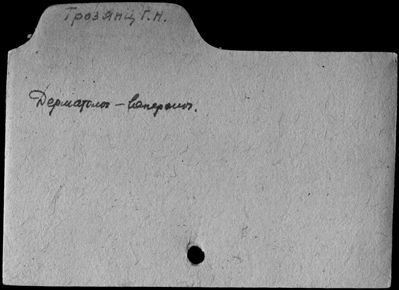 Грозянц Г.Н.
Дерматолог – венеролог.